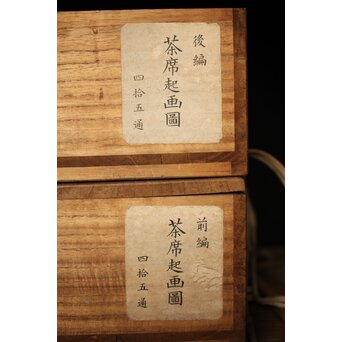 後編
茶席起画圖
四拾五通
前編
茶席起画圖
四拾五通